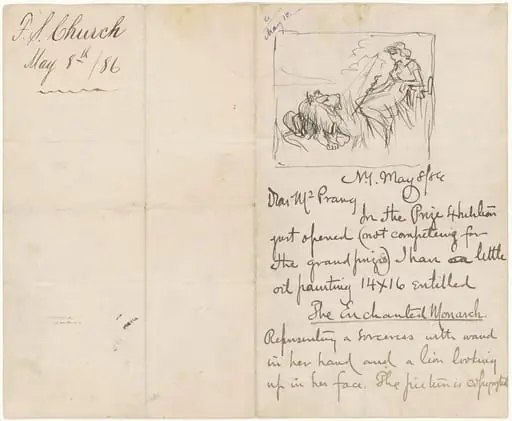 F. S. Church
May 8th /86
May 10
N.Y. May 8/86
Dear Mr Prang
In the Prize Exhibition
just opened (not competing for
the grand prizes) I have a little
oil painting 14x16 entitled
The Enchanted Monarch
Representing a sorceress with wand
in her hand and a lion looking
up in her face. The picture is copyrighted